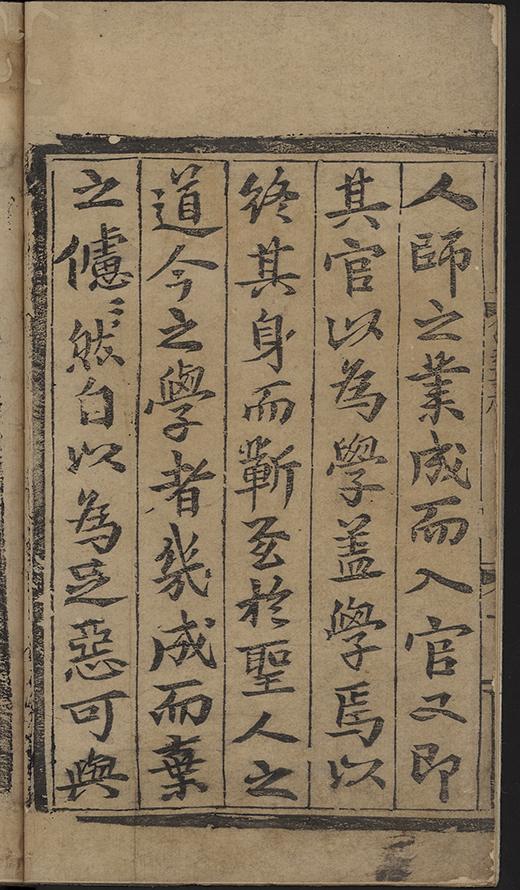 人師之業成而入官又即
其官以為學蓋學焉以
終其身而蘄至於聖人之
道今之學者幾成而棄
之儢〻然自以為足惡可與